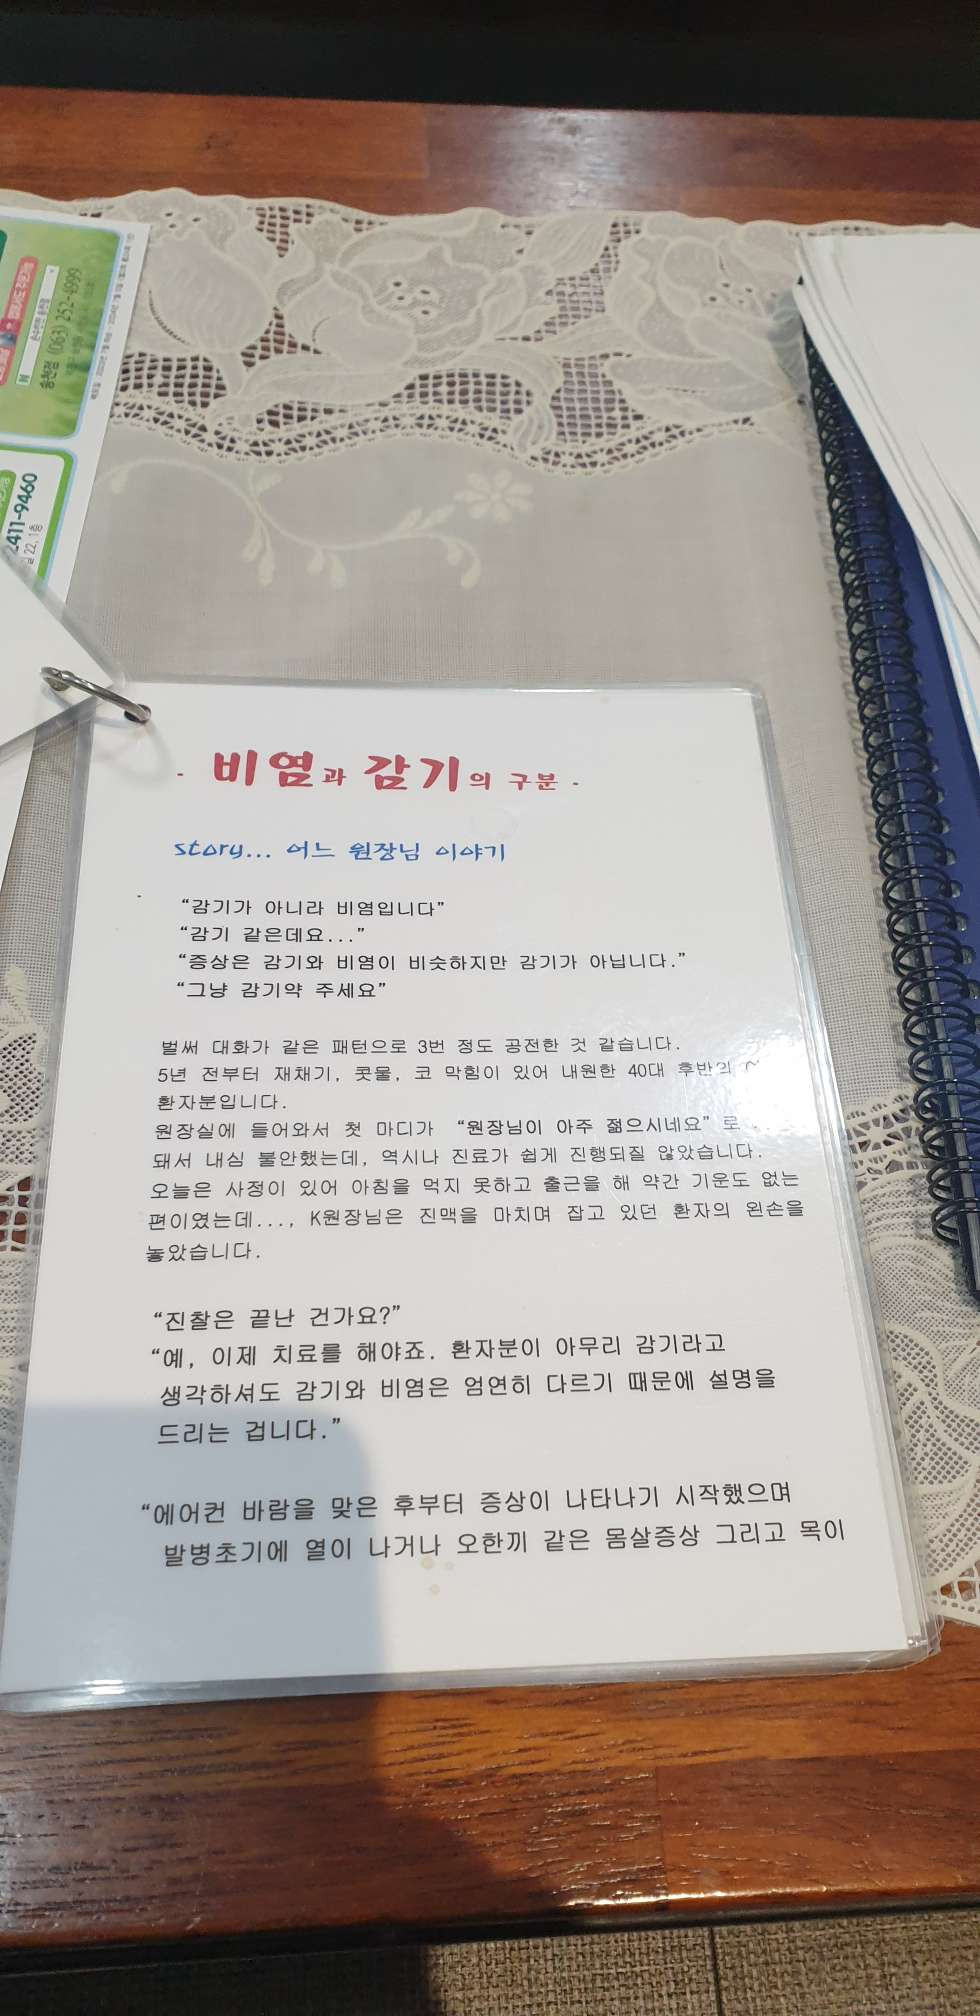 송천점 (063) 252-4999
2411-9460
22, 1층
- 비염과 감기의 구분 -
story... 어느 원장님 이야기
“감기가 아니라 비염입니다”
“감기 같은데요...”
“증상은 감기와 비염이 비슷하지만 감기가 아닙니다.”
“그냥 감기약 주세요”
벌써 대화가 같은 패턴으로 3번 정도 공전한 것 같습니다.
5년 전부터 재채기, 콧물, 코 막힘이 있어 내원한 40대 후반의
환자분입니다.
원장실에 들어와서 첫 마디가 “원장님이 아주 젊으시네요” 로
돼서 내심 불안했는데, 역시나 진료가 쉽게 진행되질 않았습니다.
오늘은 사정이 있어 아침을 먹지 못하고 출근을 해 약간 기운도 없는
편이였는데..., K원장님은 진맥을 마치며 잡고 있던 환자의 왼손을
놓았습니다.
“진찰은 끝난 건가요?”
“예, 이제 치료를 해야죠. 환자분이 아무리 감기라고
생각하셔도 감기와 비염은 엄연히 다르기 때문에 설명을
드리는 겁니다.”
“에어컨 바람을 맞은 후부터 증상이 나타나기 시작했으며
발병초기에 열이 나거나 오한끼 같은 몸살증상 그리고 목이